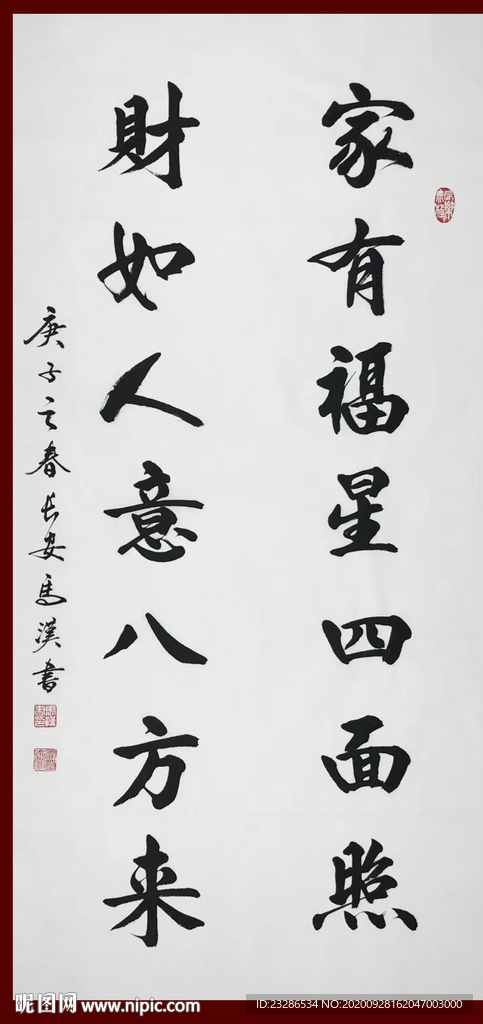 家有福星四面照
財如人意八方来
庚子之春长安馬漢書
昵图网 www.nipic.com
ID:23286534 NO:20200928162047003000